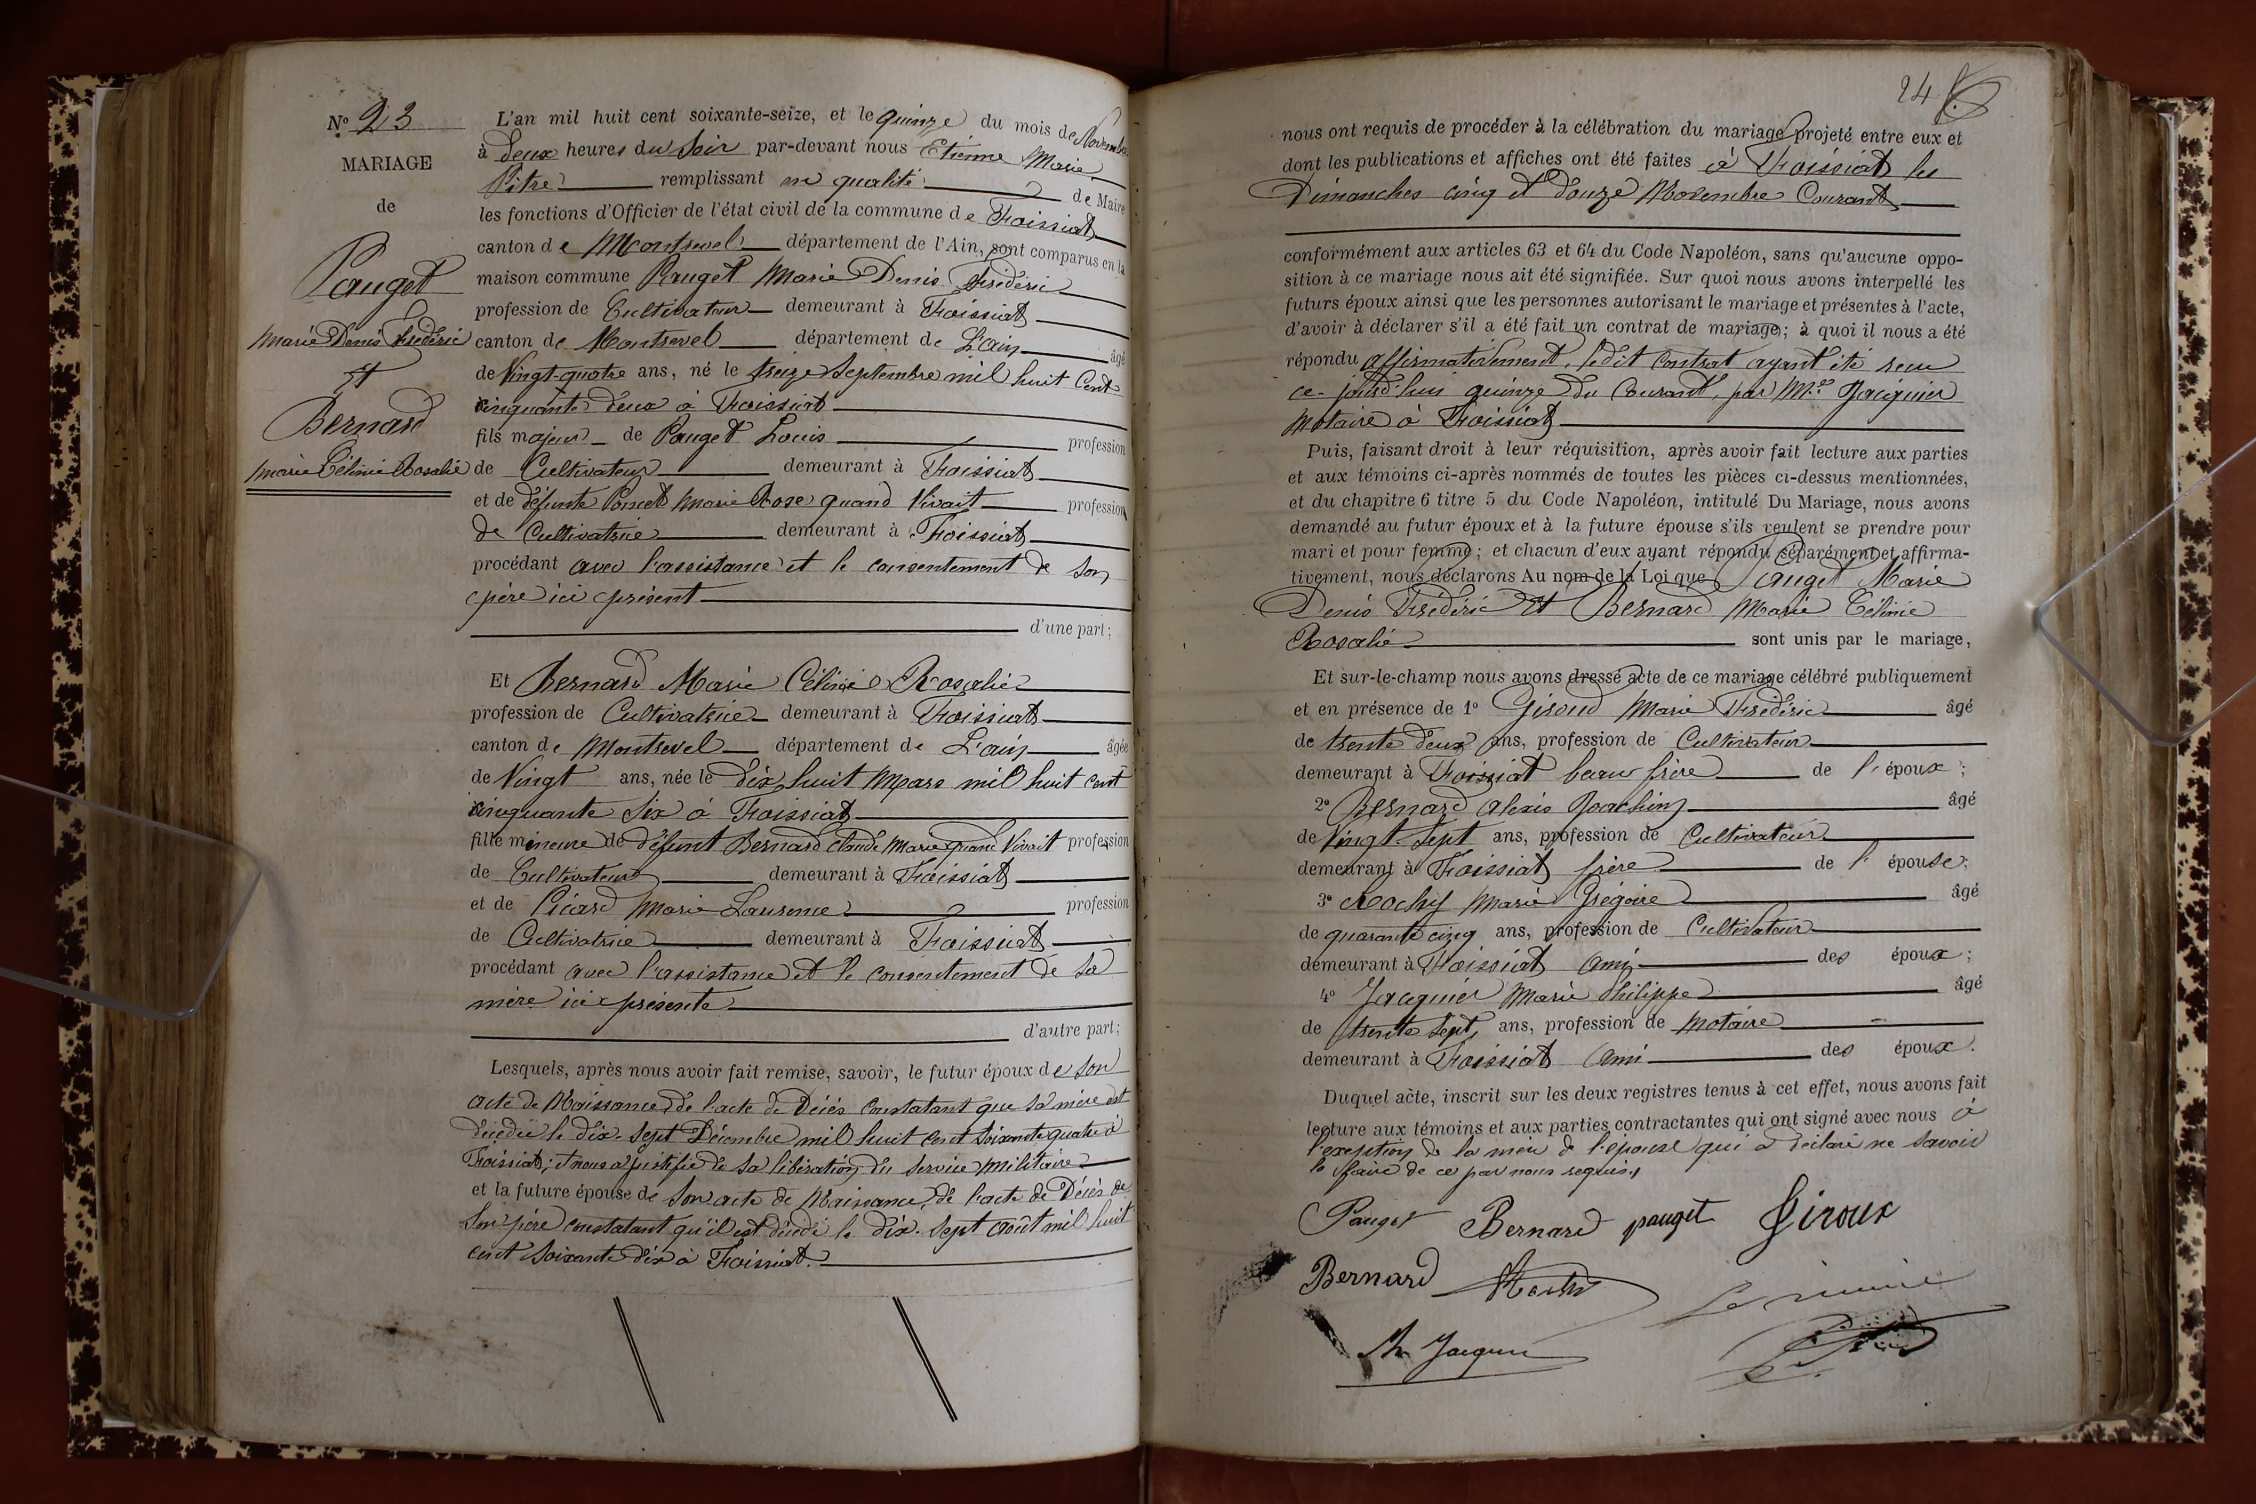 N° 23
MARIAGE
de
Pauget
Marie Denis Frédéric
Et
Bernard
Marie Céline Rosalie
L'an mil huit cent soixante-seize, et le quinze du mois de Novembre
à deux heures du Soir par-devant nous Etienne Marie
Pitre remplissant en qualité de Maire
les fonctions d'Officier de l'état civil de la commune de Foissiat
canton de Montrevel département de l'Ain, sont comparus en la
maison commune Pauget Marie Denis Frédéric
profession de Cultivateur demeurant à Foissiat
canton de Montrevel département de L'ain âgé
de Vingt-quatre ans, né le treize Septembre mil huit Cent
cinquante deux à Foissiat
fils majeur de Pauget Louis profession
de Cultivateur demeurant à Foissiat
et de défunte Poncet Marie Rose quand Vivait profession
de Cultivatrice demeurant à Foissiat
procédant avec l'assistance et le consentement de son
père ici présent
d'une part;
Et Bernard Marie Céline Rosalie
profession de Cultivatrice demeurant à Foissiat
canton de Montrevel département de L'ain âgée
de Vingt ans, née le dix huit Mars mil huit cent
cinquante Six à Foissiat
fille mineure de défunt Bernard Claude Marie quand Vivait profession
de Cultivateur demeurant à Foissiat
et de Picard Marie Laurence profession
de Cultivatrice demeurant à Foissiat
procédant avec l'assistance et le consentement de Sa
mère ici présente
d'autre part;
Lesquels, après nous avoir fait remise, savoir, le futur époux de son
acte de Naissance, de l'acte de Décès constatant que sa mère est
décédée le dix-sept Décembre mil huit cent soixante quatre à
Foissiat; et nous a justifié de sa libération du service militaire
et la future épouse de son acte de Naissance, de l'acte de Décès de
son père constatant qu'il est décédé le dix-sept août mil huit
cent soixante dix à Foissiat.
24
nous ont requis de procéder à la célébration du mariage projeté entre eux et
dont les publications et affiches ont été faites à Foissiat les
Dimanches cinq et Douze Novembre Courant
conformément aux articles 63 et 64 du Code Napoléon, sans qu'aucune oppo-
sition à ce mariage nous ait été signifiée. Sur quoi nous avons interpellé les
futurs époux ainsi que les personnes autorisant le mariage et présentes à l'acte,
d'avoir à déclarer s'il a été fait un contrat de mariage; à quoi il nous a été
répondu affirmativement, ledit contrat ayant été reçu
ce jourd'hui quinze du Courant, par Me Jacquier
Notaire à Foissiat
Puis, faisant droit à leur réquisition, après avoir fait lecture aux parties
et aux témoins ci-après nommés de toutes les pièces ci-dessus mentionnées,
et du chapitre 6 titre 5 du Code Napoléon, intitulé Du Mariage, nous avons
demandé au futur époux et à la future épouse s'ils veulent se prendre pour
mari et pour femme; et chacun d'eux ayant répondu séparément et affirma-
tivement, nous déclarons Au nom de la Loi que Pauget Marie
Denis Frédéric Et Bernard Marie Céline
Rosalie sont unis par le mariage,
Et sur-le-champ nous avons dressé acte de ce mariage célébré publiquement
et en présence de 1° Giroud Marie Frédéric âgé
de trente deux ans, profession de Cultivateur
demeurant à Foissiat beau frère de l'époux;
2° Bernard Alexis Joachim âgé
de Vingt-Sept ans, profession de Cultivateur
demeurant à Foissiat frère de l'épouse;
3° Rochy Marie Grégoire âgé
de quarante cinq ans, profession de Cultivateur
demeurant à Foissiat ami des époux;
4° Jacquier Marie Philippe âgé
de trente Sept ans, profession de Notaire
demeurant à Foissiat ami des époux.
Duquel acte, inscrit sur les deux registres tenus à cet effet, nous avons fait
lecture aux témoins et aux parties contractantes qui ont signé avec nous à
l'exception de la mère de l'épouse qui a déclaré ne savoir
le faire de ce par nous requis,
Pauget Bernard pauget Giroux
Bernard Rochy Le maire
Ph Jacquier